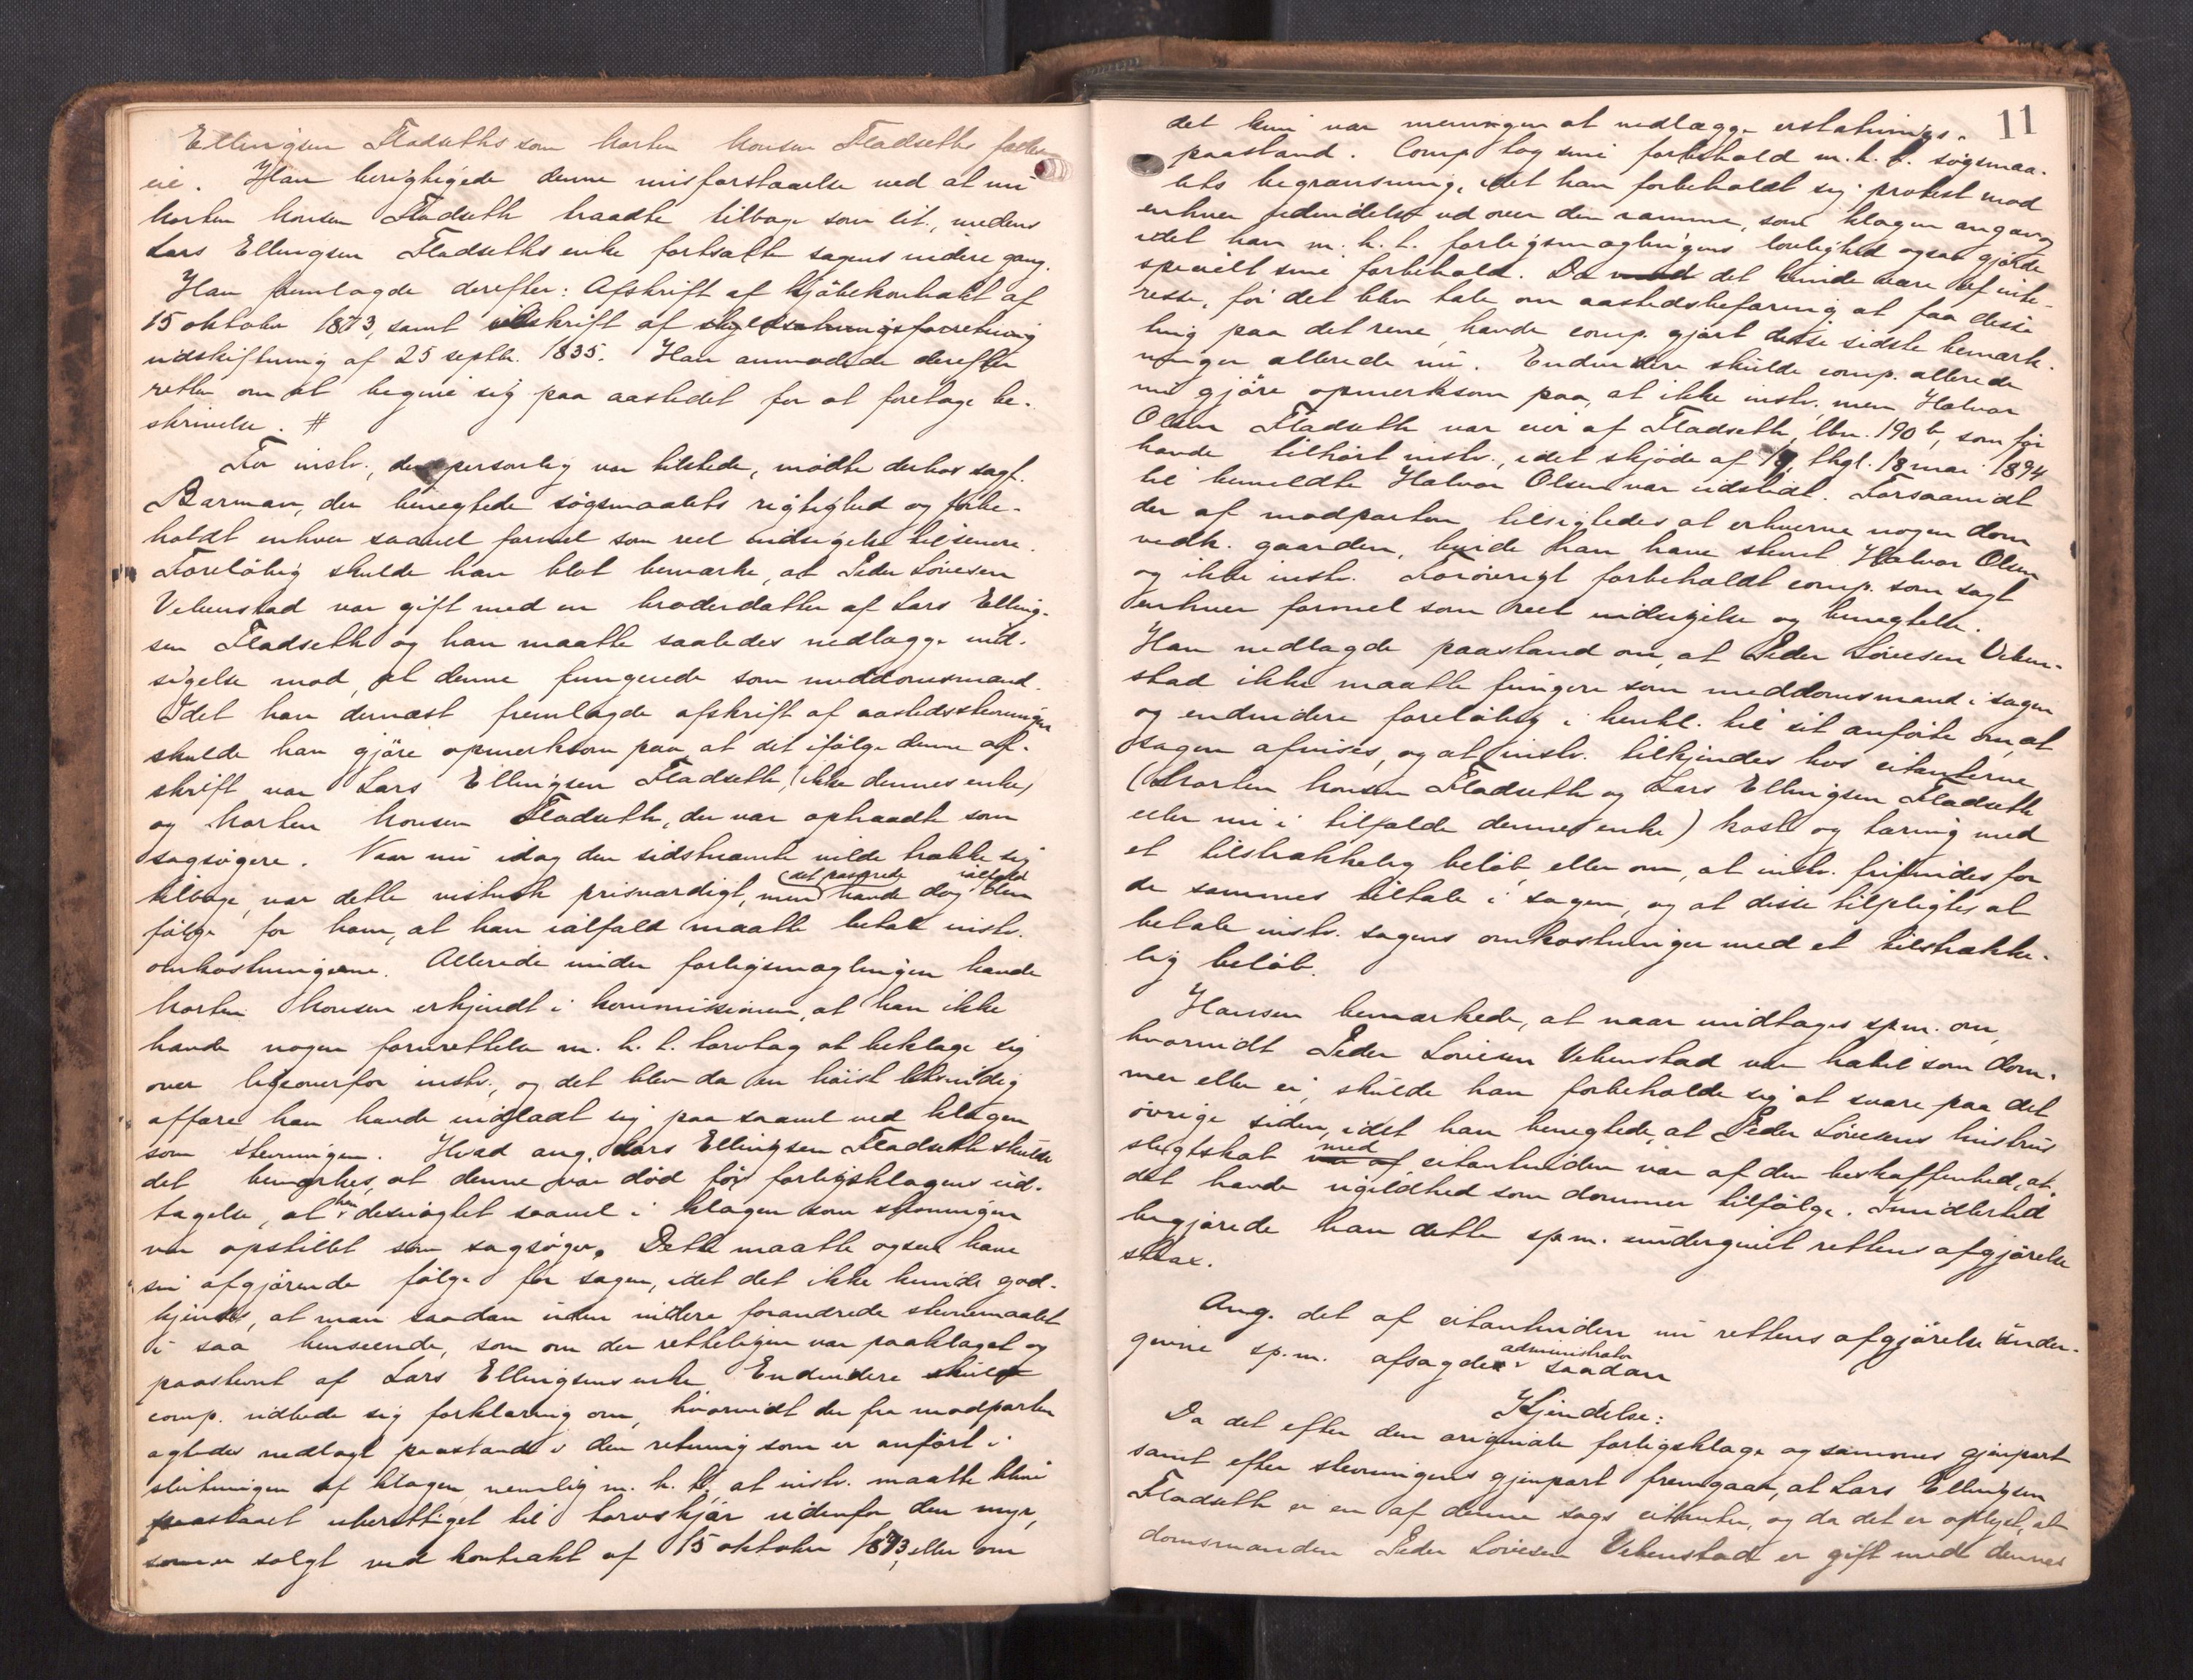 Ellingsen Fladseths som Morten Monsen Fladseths fælles
eie. Han berigtigede denne misforstaaelse ved at nu
Morten Monsen Fladseth traadte tilbage som cit., medens
Lars Ellingsen Fladseths enke fortsatte sagens videre gang.
Han fremlagde derefter: Afskrift af kjöbekontrakt af
15 oktober 1873, samt udskrift af skyldsætningsforretning
udskiftning af 25 septbr. 1835. Han anmodede derefter
retten om at begive sig paa aastedet for at foretage be-
skrivelse. #
For instv., der personlig var tilstede, mödte derhos sagf.
Barman, der benegtede sögsmaalets rigtighed og forbe-
holdt enhver saavel formel som reel indsigelse til senere.
Forelöbig skulde han blot bemærke, at Peder Lövesen
Vebenstad var gift med en broderdatter af Lars Elling-
sen Fladseth og han maatte saaledes nedlægge ind-
sigelse mod, at denne fungerede som meddomsmand.
Idet han dernæst fremlagde afskrift af aastedsstevningen
skulde han gjöre opmerksom paa, at det ifölge denne af-
skrift var Lars Ellingsen Fladseth, (ikke dennes enke)
og Morten Monsen Fladseth, der var optraadt som
sagsögere. Naar nu idag den sidstnævnte vilde trække sig
tilbage, var dette vistnok prisværdigt, men (det passerede havde dog ialfald den
fölge for ham, at han ialfald maatte betale instv.
omkostningerne. Allerede under forligsmæglingen havde
Morten Monsen erkjendt i kommissionen, at han ikke
havde nogen forurettelse m. h. t. torvtag at beklage sig
over ligeoverfor instv., og det blev da en höist letsindig
affære han havde indladt sig paa saavel ved klagen
som stevningen. Hvad ang. Lars Ellingsen Fladseth skulde
det bemærkes, at denne var död för forligsklagens ud-
tagelse, at han desuagtet saavel i klagen som stevningen
var opstillet som sagsöger. Dette maatte ogsaa have
sin afgjörende fölge for sagen, idet det ikke kunde god-
kjendes, at man saadan uden videre forandrede stevnemaalet
i saa henseende, som om der retteligen var paaklaget og
paastevnt af Lars Ellingsens enke. Endvidere skulde
comp. udbede sig forklaring om, hvorvidt der fra modparten
agtedes nedlagt paastand i den retning som er anfört i
slutningen af klagen, nemlig m. h. t. at instv. maatte blive
paastaaet uberettiget til torvskjær udenfor den myr,
som er solgt ved kontrakt af 15 oktober 1873, eller om
11
det kun var meningen at nedlægge erstatnings-
paastand. Comp. tog sine forbehold m. h. t. sögsmaa-
lets begrænsning, idet han forbeholdt sig protest mod
enhver udvidelse ud over den ramme, som klagen angav,
idet han m. h. t. forligsmæglingens lovlighed ogsaa gjorde
specielt sine forbehold. Da det kunde være af inte-
resse, för det blev tale om aastedsbefaring at faa disse
ting paa det rene, havde comp. gjort disse sidste bemærk-
ninger allerede nu. Endvidere skulde comp. allerede
nu gjöre opmerksom paa, at ikke instv., men Halvor
Olsen Fladseth var eier af Fladseth, lbn. 190 b, som för
havde tilhört instv., idet skjöde af 18, thgl. 18 mai 1894
til bemeldte Halvor Olsen var udstedt. Forsaavidt
der af modparten tilsigtedes at erhverve nogen dom
vedk. gaarden, burde han have stevnt Halvor Olsen
og ikke instv. Forövrigt forbeholdt comp. som sagt
enhver formel som reel indsigelse og benegtelse.
Han nedlagde paastand om, at Peder Lövesen Veben-
stad ikke maatte fungere som meddomsmand i sagen
og endvidere forelöbig i henh. til sit anförte om, at
sagen afvises, og at instv. tilkjendes hos citanterne
(Morten Monsen Fladseth og Lars Ellingsen Fladseth
eller nu i tilfælde dennes enke) kost og tæring med
et tilstrækkelig belöb, eller om, at instv. frifindes for
de sammes tiltale i sagen, og at disse tilpligtes at
betale instv. sagens omkostninger med et tilstrække-
lig belöb.
Hansen bemærkede, at naar undtages spm. om,
hvorvidt Peder Lövesen Vebenstad var habil som dom-
mer eller ei, skulde han forbeholde sig at svare paa det
övrige siden, idet han benegtede, at Peder Lövesens hustrus
slegtskab var af med citantinden var af den beskaffenhed, at
det havde ugildhed som dommer tilfölge. Imidlertid
begjærede han dette spm. undergivet rettens afgjörelse
strax.
Ang. det af citantinden nu rettens afgjörelse under-
givne sp.m. afsagde administrator saadan
Kjendelse:
Da det efter den originale forligsklage og sammes gjenpart
samt efter stevningens gjenpart fremgaar, at Lars Ellingsen
Fladseth er en af denne sags citanter, og da det er oplyst, at
domsmanden Peder Lövesen Vebenstad er gift med dennes